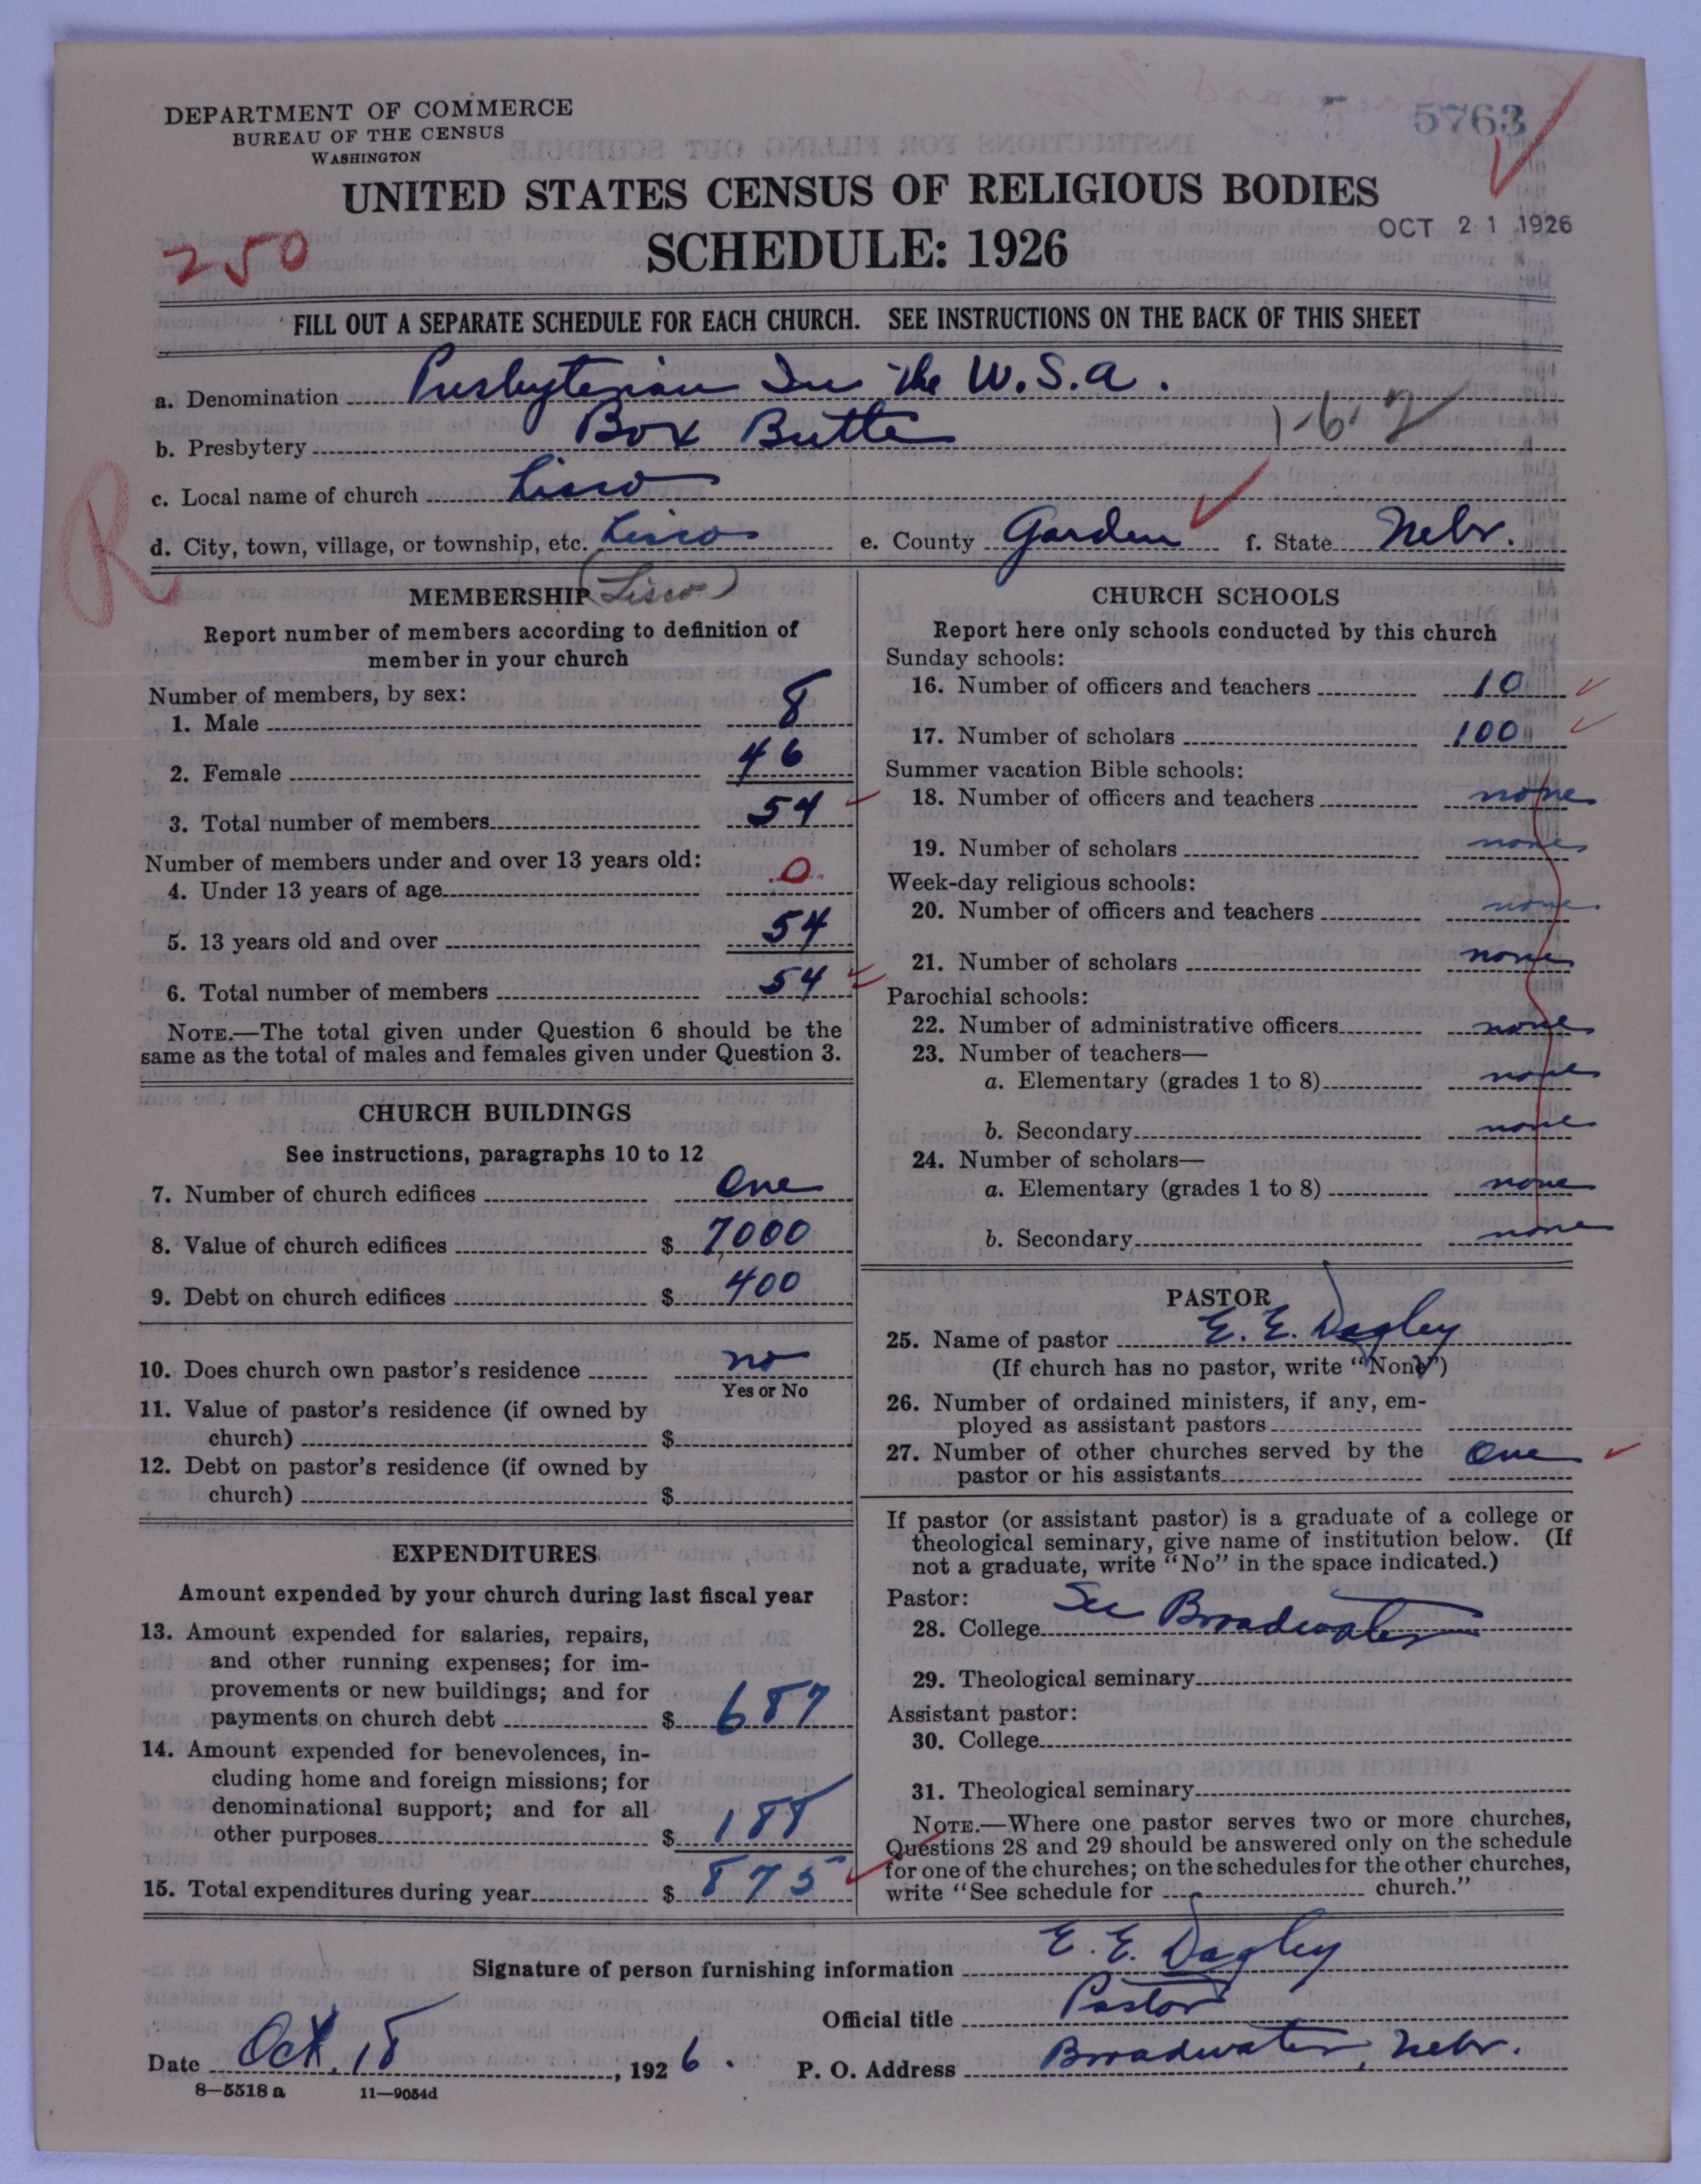 DEPARTMENT OF COMMERCE
BUREAU OF THE CENSUS
WASHINGTON
5763
UNITED STATES CENSUS OF RELIGIOUS BODIES
OCT 21 1926
250
SCHEDULE: 1926
FILL OUT A SEPARATE SCHEDULE FOR EACH CHURCH. SEE INSTRUCTIONS ON THE BACK OF THIS SHEET
a. Denomination Presbyterian In the U.S.a.
1-6-2
b. Presbytery Box Butte
c. Local name of church Lisco
R
d. City, town, village, or township, etc. Lisco e. County Garden f. State Nebr.
MEMBERSHIP (Lisco)
Report number of members according to definition of
member in your church
Number of members, by sex:
1. Male 8
2. Female 46
3. Total number of members 54
Number of members under and over 13 years old:
4. Under 13 years of age 0
5. 13 years old and over 54
6. Total number of members 54
NOTE.—The total given under Question 6 should be the
same as the total of males and females given under Question 3.
CHURCH BUILDINGS
See instructions, paragraphs 10 to 12
7. Number of church edifices One
8. Value of church edifices $ 7000
9. Debt on church edifices $ 400
10. Does church own pastor's residence no
Yes or No
11. Value of pastor's residence (if owned by
church) $
12. Debt on pastor's residence (if owned by
church) $
EXPENDITURES
Amount expended by your church during last fiscal year
13. Amount expended for salaries, repairs,
and other running expenses; for im-
provements or new buildings; and for
payments on church debt $ 687
14. Amount expended for benevolences, in-
cluding home and foreign missions; for
denominational support; and for all
other purposes $ 188
15. Total expenditures during year $ 875
CHURCH SCHOOLS
Report here only schools conducted by this church
Sunday schools:
16. Number of officers and teachers 10
17. Number of scholars 100
Summer vacation Bible schools:
18. Number of officers and teachers none
19. Number of scholars none
Week-day religious schools:
20. Number of officers and teachers none
21. Number of scholars none
Parochial schools:
22. Number of administrative officers none
23. Number of teachers—
a. Elementary (grades 1 to 8) none
b. Secondary none
24. Number of scholars—
a. Elementary (grades 1 to 8) none
b. Secondary none
PASTOR
25. Name of pastor E. E. Dagley
(If church has no pastor, write "None")
26. Number of ordained ministers, if any, em-
ployed as assistant pastors
27. Number of other churches served by the One
pastor or his assistants
If pastor (or assistant pastor) is a graduate of a college or
theological seminary, give name of institution below. (If
not a graduate, write "No" in the space indicated.)
Pastor:
28. College See Broadwater
29. Theological seminary
Assistant pastor:
30. College
31. Theological seminary
NOTE.—Where one pastor serves two or more churches,
Questions 28 and 29 should be answered only on the schedule
for one of the churches; on the schedules for the other churches,
write "See schedule for church."
Signature of person furnishing information E. E. Dagley
Official title Pastor
Date Oct 18, 1926. P. O. Address Broadwater, Nebr.
8—5518 a 11—9054d